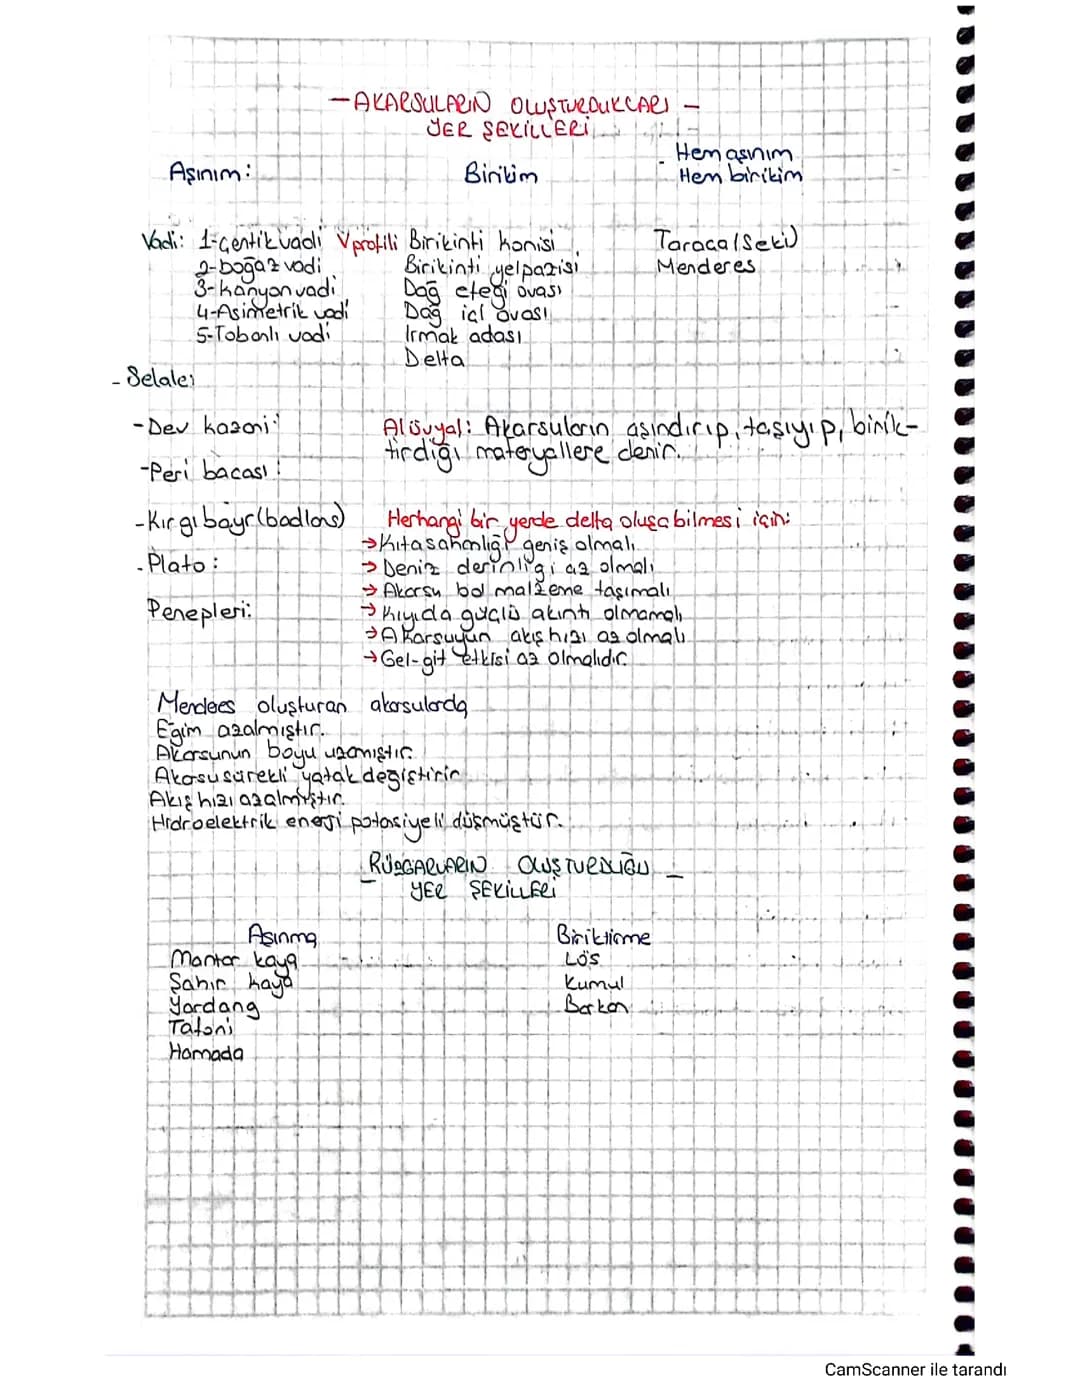 -AKARSULARIN OLUŞTURDUKLARI -
YER ŞEKİLLERİ
Aşınım:
Birikim
Hem aşınım
Hem birikim
Vadi: 1-Çentik vadi V profili
2-boğaz vadi
3-kanyon vadi
4-Asimetrik vadi
5-Tabanlı vadi
Birikinti konisi
Birikinti yelpazisi
Dağ eteği ovası
Dağ içi ovası
Irmak adası
Delta
Taraca (Seki)
Menderes
- Şelale:
-Dev kazanı:
-Peri bacası:
-Kırgıbayr(badlans)
-Plato:
Penepleri:
Alüvyal: Akarsuların aşındırıp, taşıyıp, birik-
tirdiği materyallere denir.
Herhangi bir yerde delta oluşabilmesi için:
→Kıta sahanlığı geniş olmalı
→Deniz derinliği az olmalı
→Akarsu bol malzeme taşımalı
→Kıyıda güçlü akıntı olmamalı
→Akarsuyun akış hızı az olmalı
→Gel-git etkisi az olmalıdır.
Mendees oluşturan akarsularda
Eğim azalmıştır.
Akarsunun boyu uzamıştır.
Akasu sürekli yatak değiştirir
Akış hızı azalmıştır.
Hidroelektrik enerji potasiyeli düşmüştür.
_RÜZGARLARIN OLUŞTURDUĞU _
YER ŞEKİLLERİ
Aşınma
Mantar kaya
Şahit kaya
Yardang
Tafoni
Hamada
Biriktirme
Lös
Kumul
Barkan
CamScanner ile tarandı